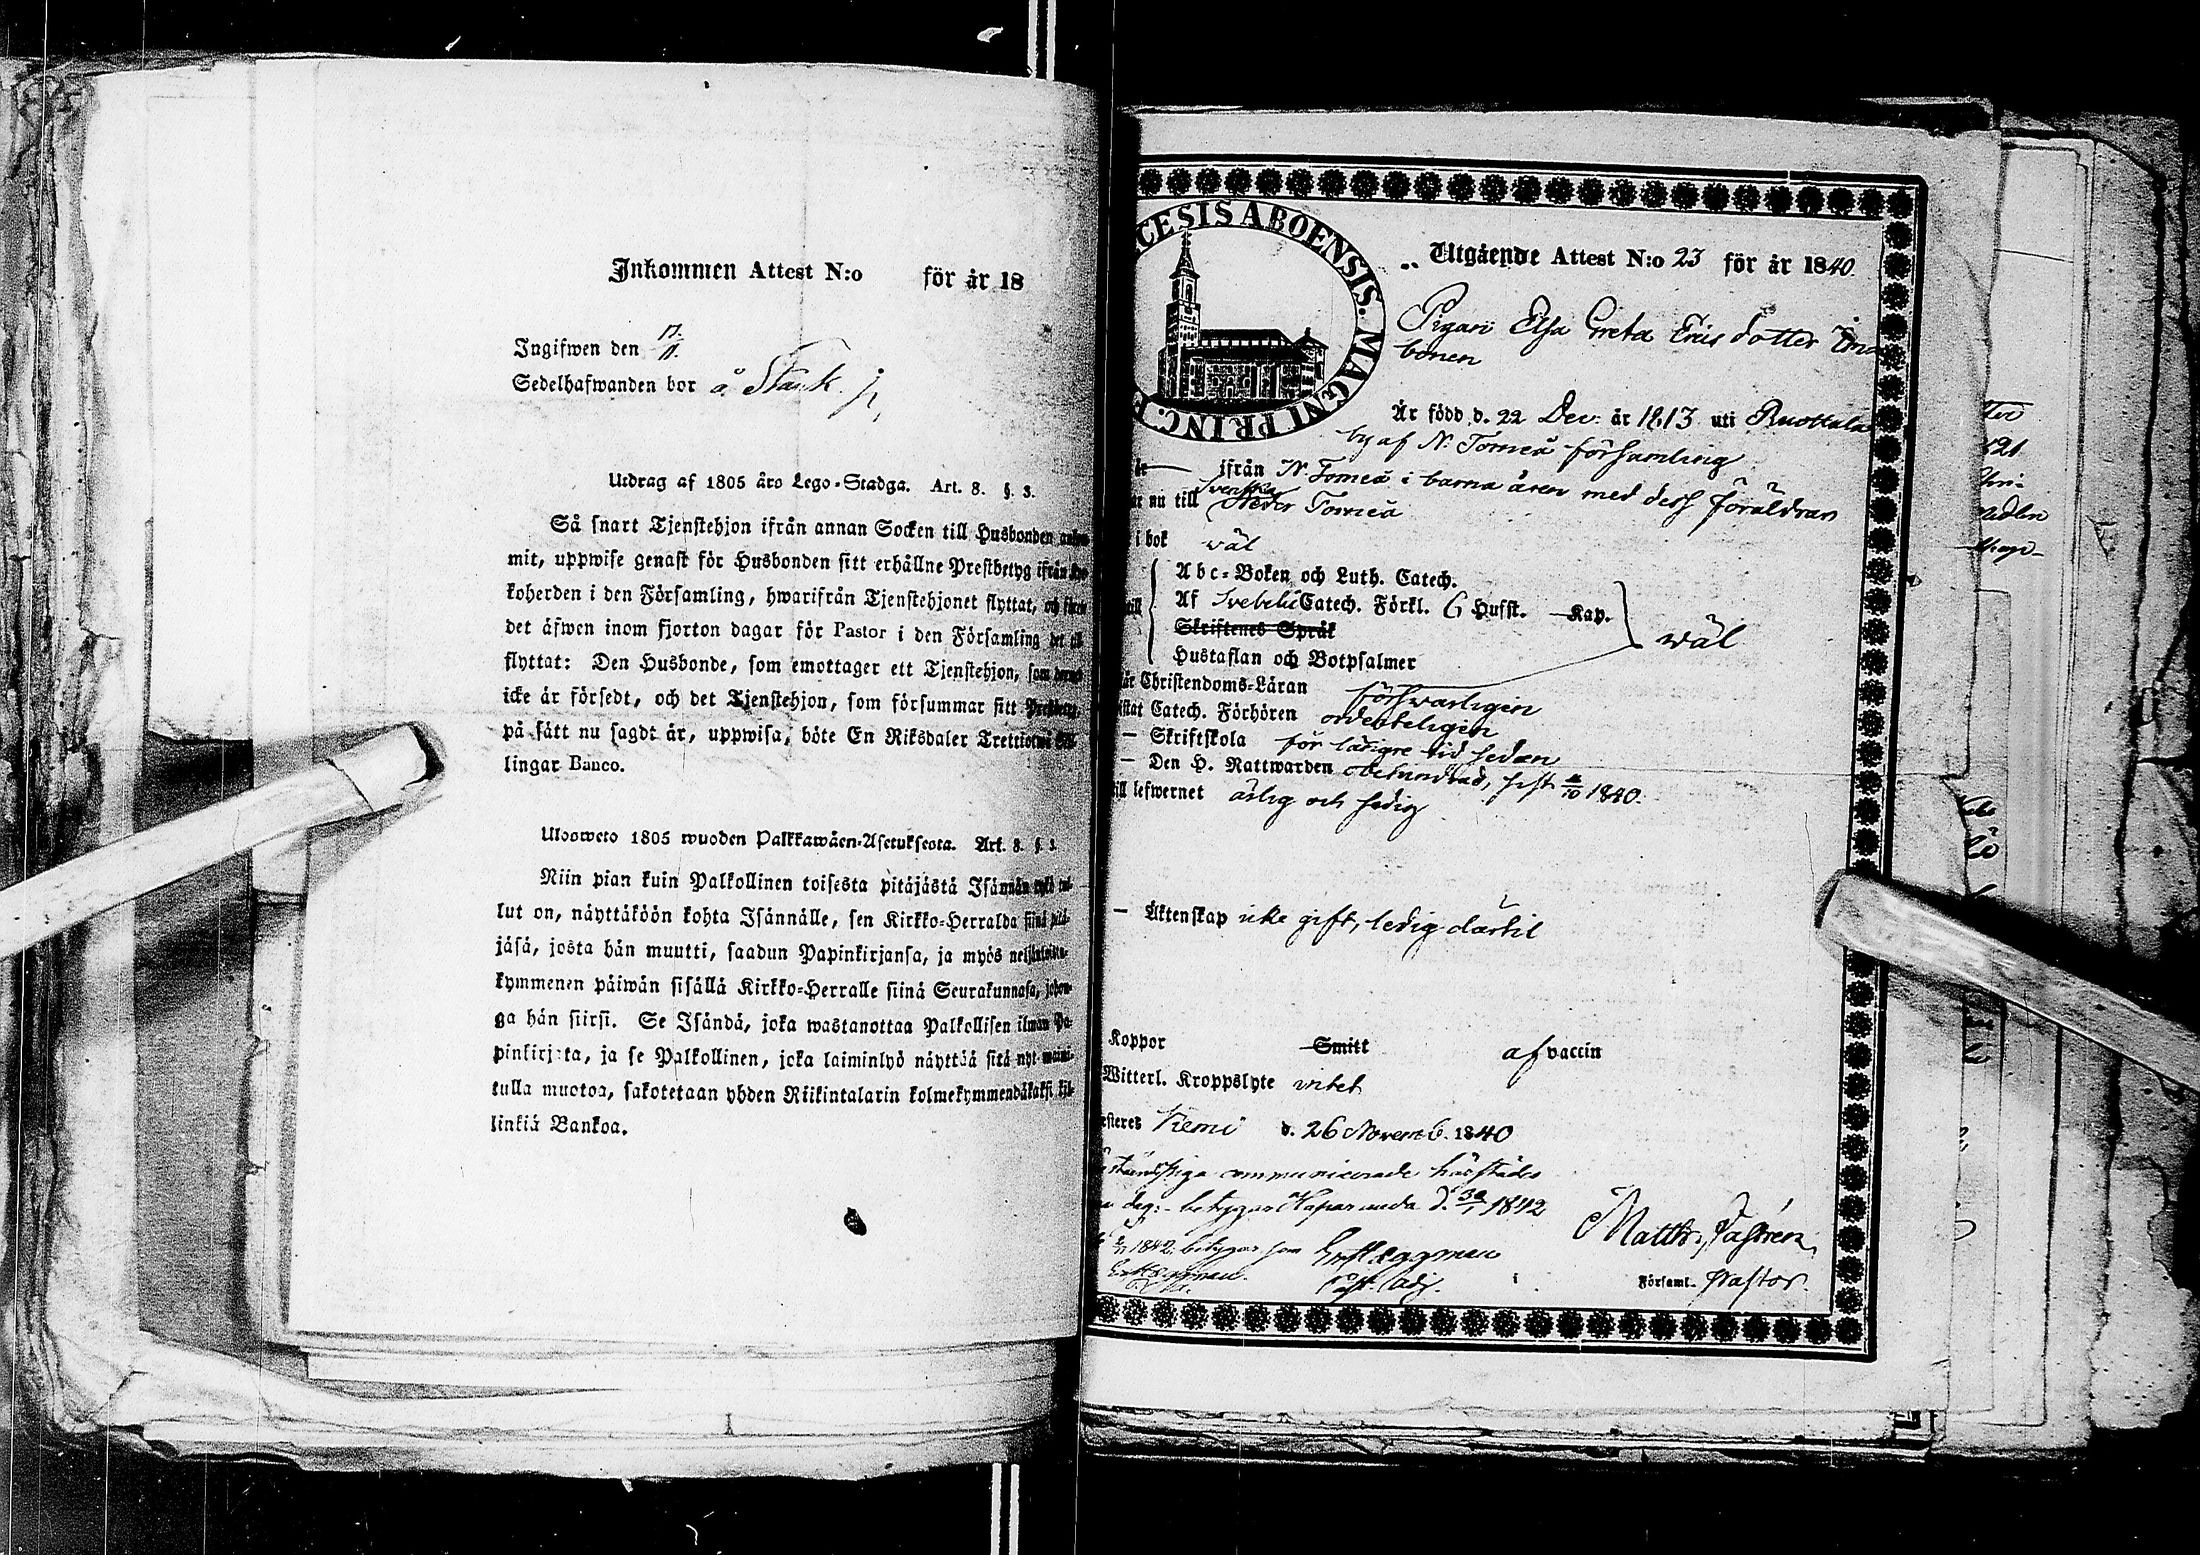 Inkommen Attest N:o för år 18
Ingifwen den 17/11.
Sedelhafwanden bor å
Utdrag af 1805 års Lego-Stadga. Art. 8. §. 3.
Så snart Tjenstehjon ifrån annan Socken till Husbonden
mit, uppwise genast för Husbonden sitt erhållne Prestbetyg ifrån
koherden i den Församling, hwarifrån Tjenstehjonet flyttat, och
det äfwen inom fjorton dagar för Pastor i den Församling det till
flyttat: Den Husbonde, som emottager ett Tjenstehjon, som
icke är försedt, och det Tjenstehjon, som försummar sitt
på sätt nu sagdt är, uppwisa, böte En Riksdaler Trettiotwå
lingar Banco.
Ulosweto 1805 wuoden Palkkawäen-Asetuksesta. Art. 8. §. 3.
Niin pian kuin Palkollinen toisesta pitäjästä Isännän tykö tul-
lut on, näyttäköön kohta Isännälle, sen Kirkko-Herralda siinä pitä-
jäsä, josta hän muutti, saadun Papinkirjansa, ja myös
kymmenen päiwän sisällä Kirkko-Herralle siinä Seurakunnasa, johon-
ga hän siirsi. Se Isändä, joka wastanottaa Palkollisen ilman Pa-
pinkirjata, ja se Palkollinen, joka laiminlyö näyttää sitä nyt maini-
tulla muotoa, sakotetaan yhden Riikintalarin kolmekymmendäkaksi kil-
linkiä Bankoa.
CESIS ABOENSIS. MAGNI PRINC. F
Utgående Attest N:o 23 för år 1840
Pigan Elsa Greta Ersdotter
bonen
Är född d. 22 Dec: år 1813 uti Ruottala
by af N. Torneå församling
ifrån N. Torneå i barna åren med dess föräldrar
nu till Svenska Neder Torneå
i bok wäl
Abc-Boken och Luth. Catech.
Af Svebelii Catech. Förkl. 6 Hufst. Kap.
Skriftenes Språk
wäl
Hustaflan och Botpsalmer
Christendoms-Läran förswarligen
Catech. Förhören ordenteligen
— Skriftskola för längre tid sedan
— Den H. Nattwarden obehindrad, sist /10 1840.
till lefwernet ärlig och sedig
— Äktenskap icke gift, ledig därtil
Koppor Smitt af vaccin
Witterl. Kroppslyte vitet
Kemi d. 26 Novemb. 1840
communicerade härstädes
dag: betygar Haparanda d. 30/1 1842
1842. betygar som
Matths Castrén,
Past. Adj.
Församl. Pastor.